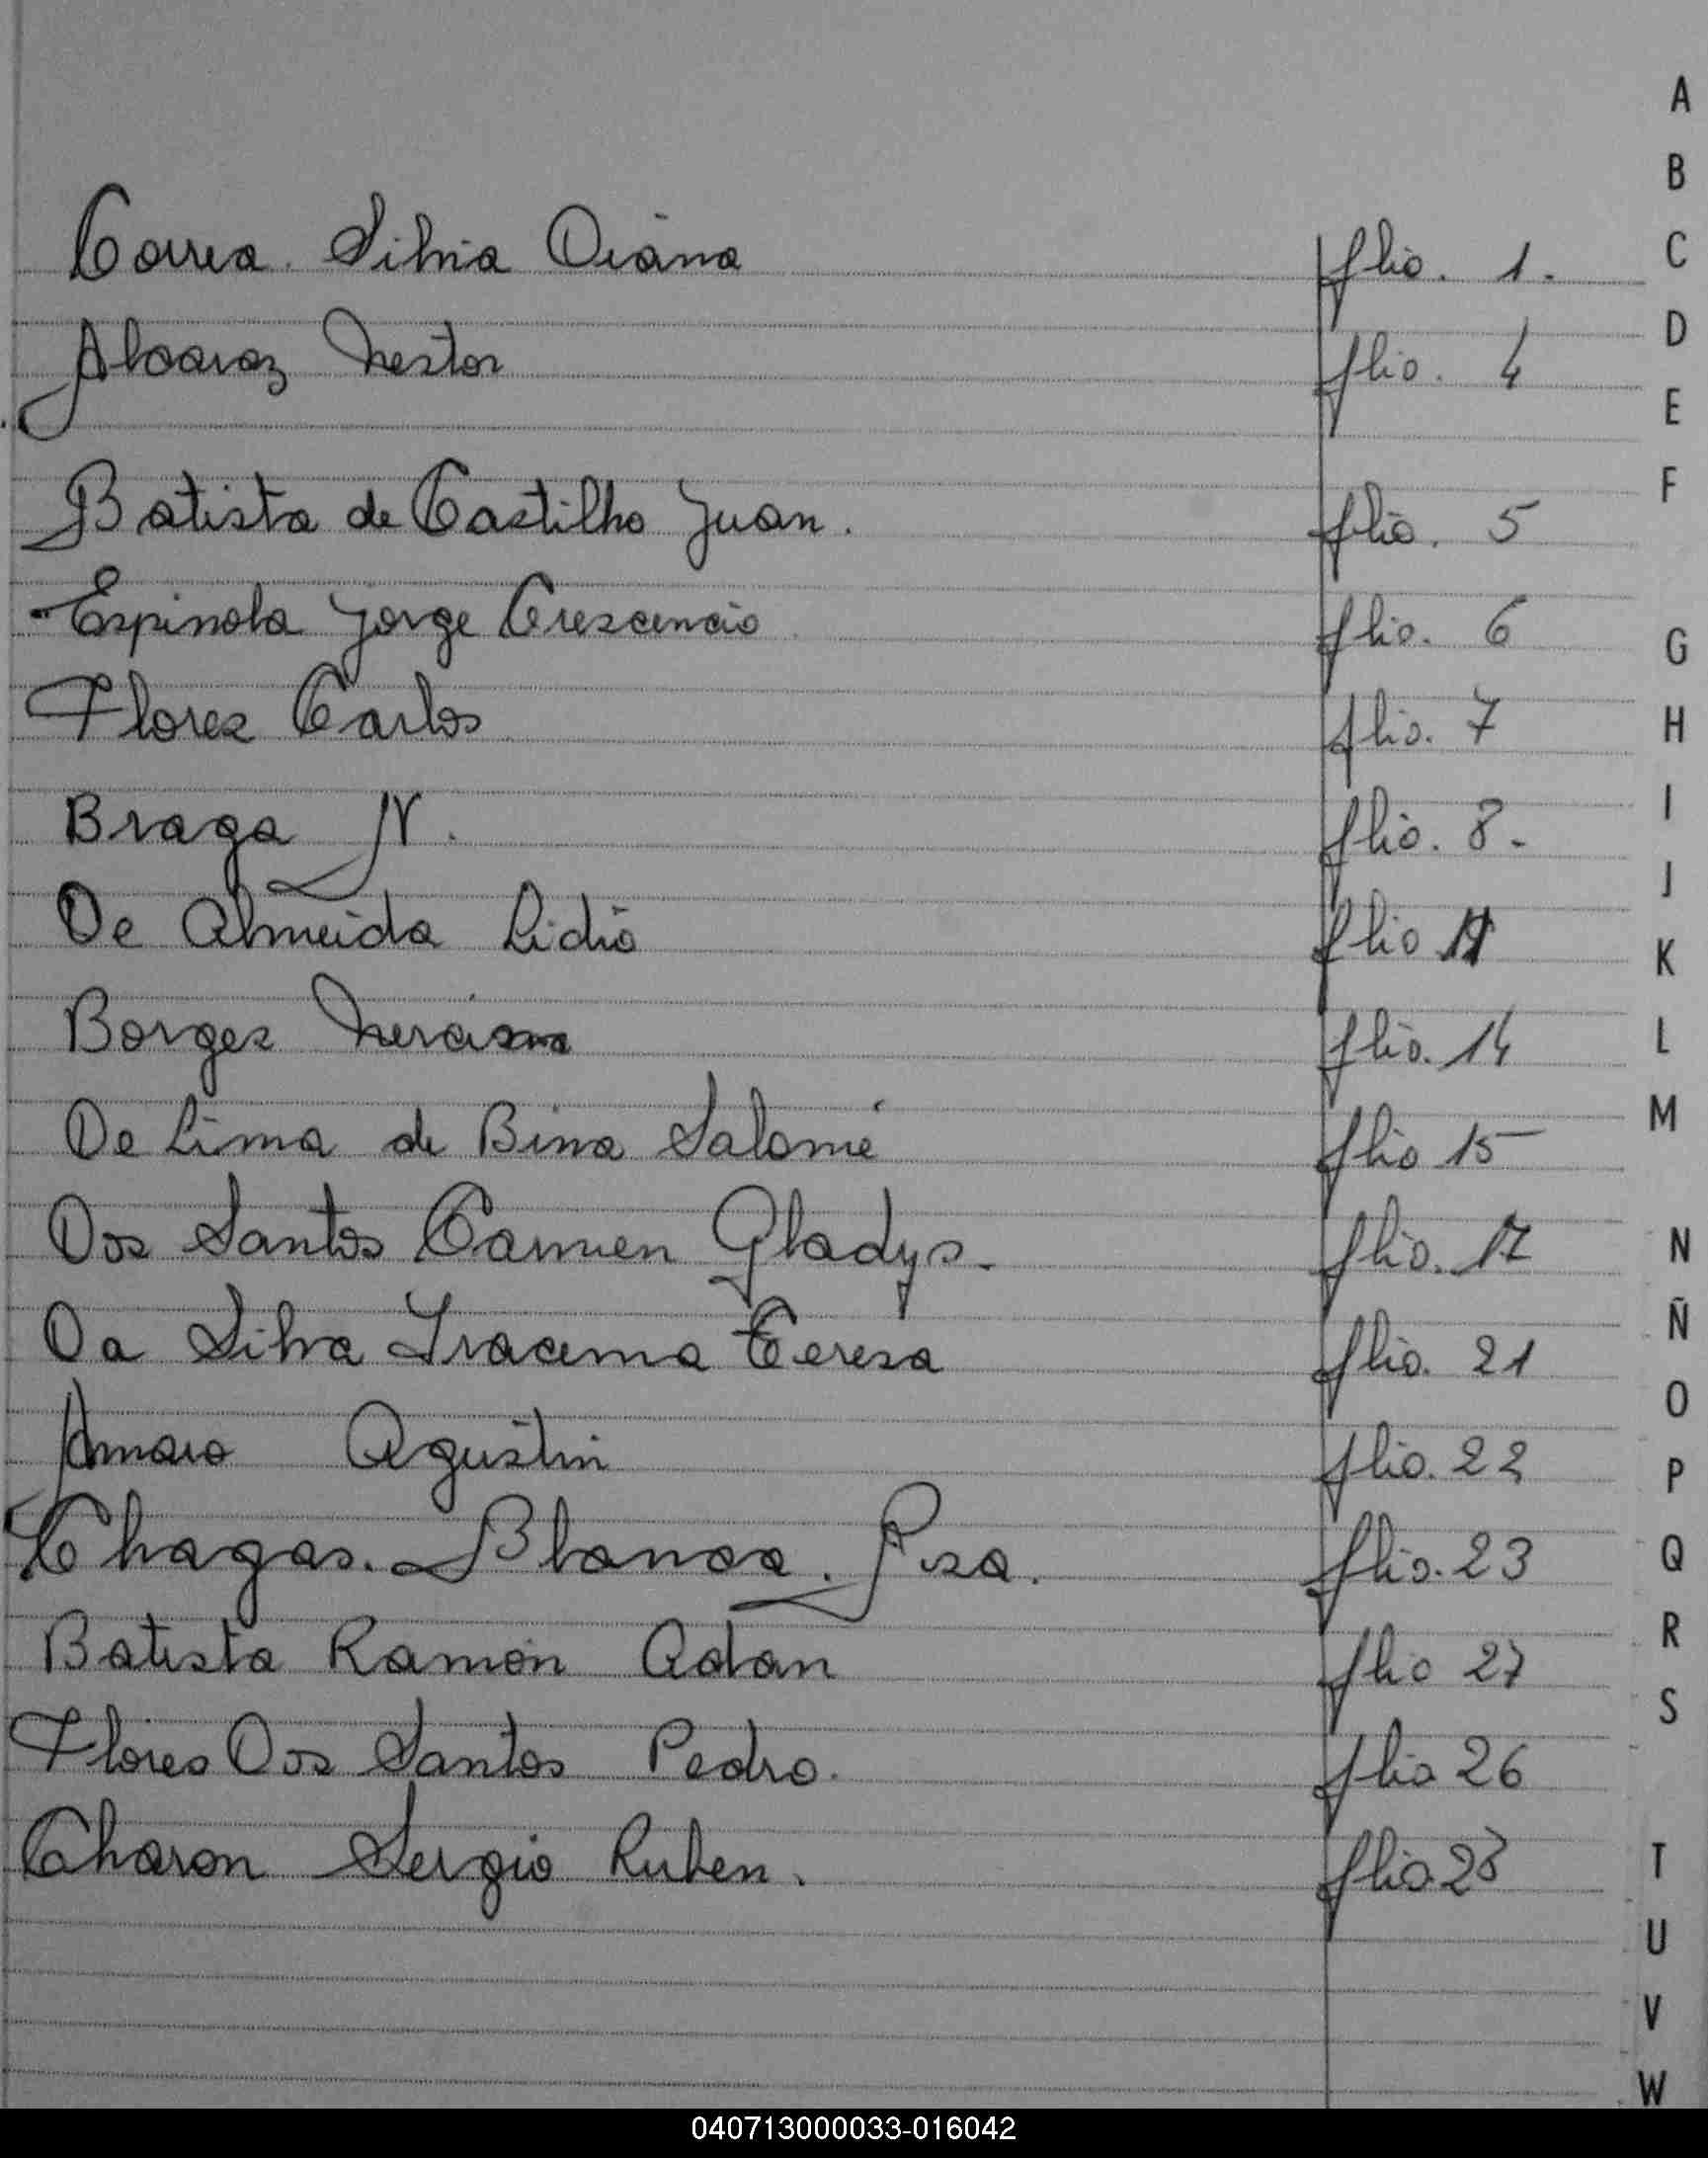 Correa. Silvia Diana flio. 1.
Alcaraz Nestor flio. 4
Batista de Castilho Juan. flio. 5
Espinola Jorge Crescencio flio. 6
Florez Carlos flio. 7
Braga N. flio. 8.
De Almeida Lidio flio 11
Borges flio. 14
De Lima de Bina Salomé flio 15
Dos Santos Carmen Gladys. flio. 17
Da Silva Iracema Teresa flio. 21
Amaro Agustin flio. 22
Chagas. Blanca. Rosa. flio. 23
Batista Ramón Adan flio 27
Flores Dos Santos Pedro. flio 26
Charon Sergio Ruben. flio
A
B
C
D
E
F
G
H
I
J
K
L
M
N
Ñ
O
P
Q
R
S
T
U
V
W
040713000033-016042